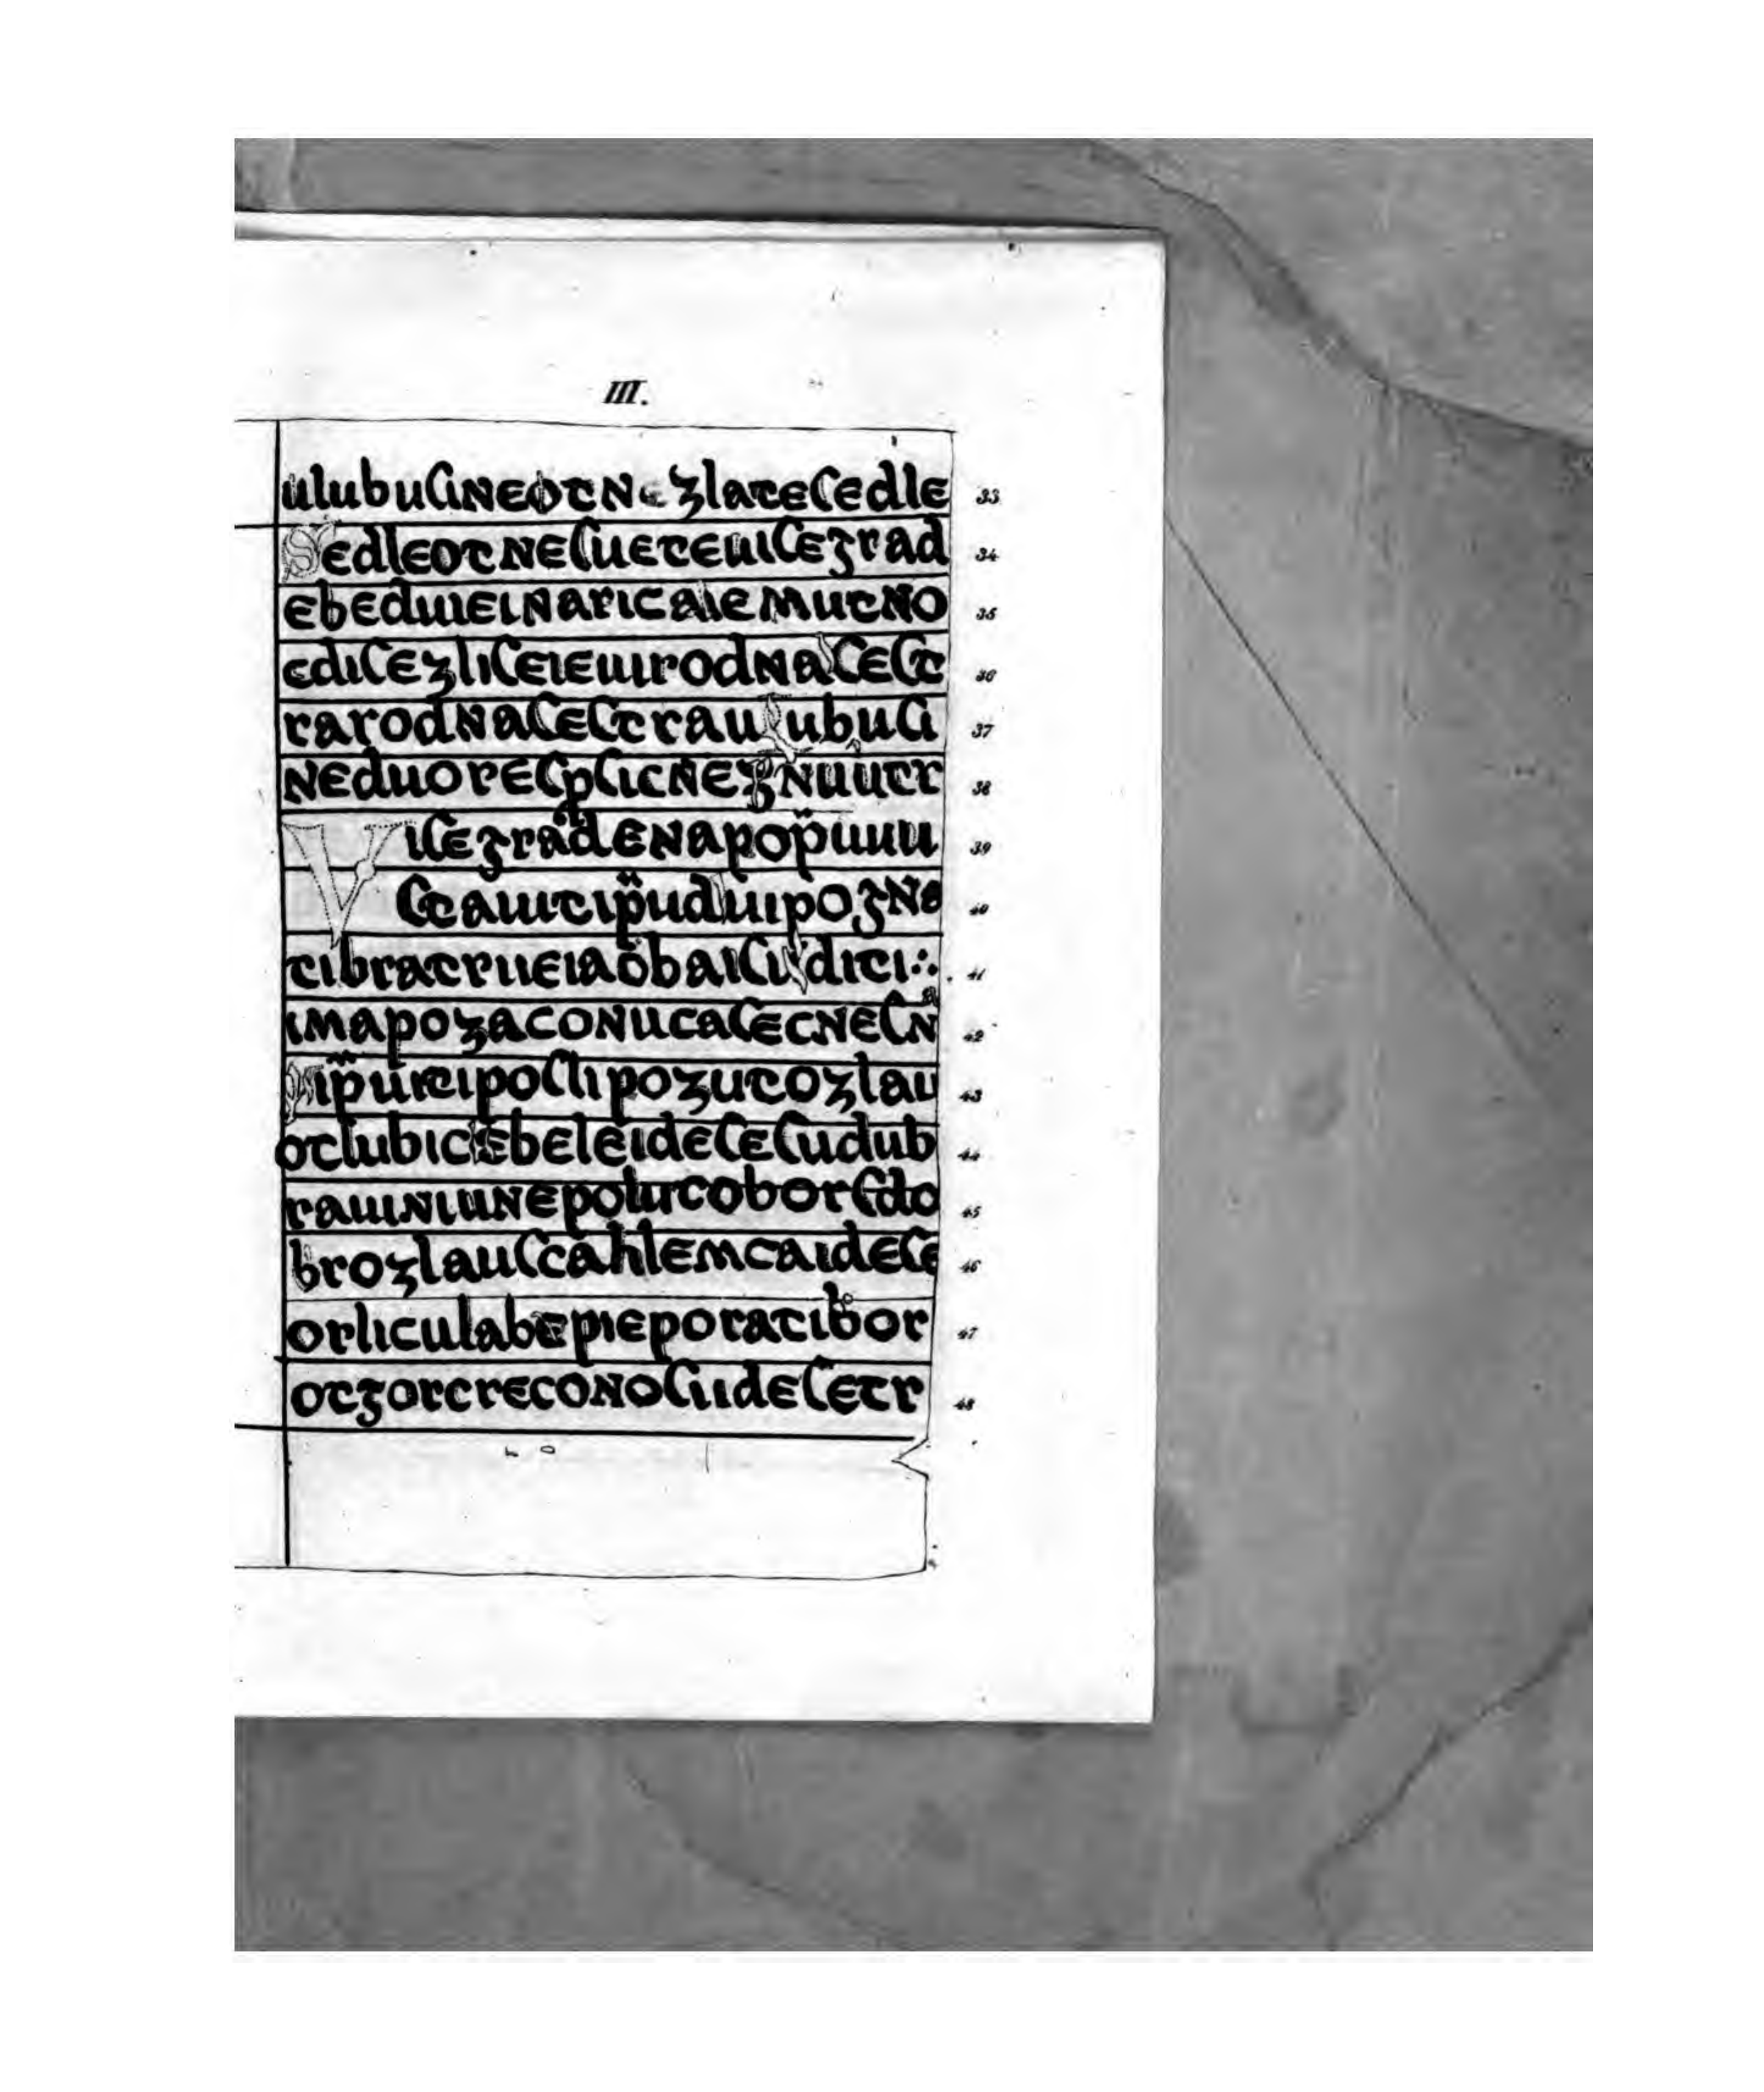 III.
ulubusineotne zlatesedle 33
Sedleotnesueteuisegrad 34
ebeduieinaricaiemutno 35
edisezliseieuirodnasest 36
rarodnasestrauLubusi 37
neduorespsicnegnuutr 38
Visegradenapop̈uuu 39
staiuitip̈uduipozna 40
tibratrueiaobaisudici∴ 41
imapozaconucasecnesna 42
Pip̈uitiposlipozutozlau 43
otlubicebeleidesesudub 44
rauiniunepolutoborsdo 45
brozlausscahlemcaidese 46
orliculabepieporatibor 47
otgorcreconosiidesetr 48